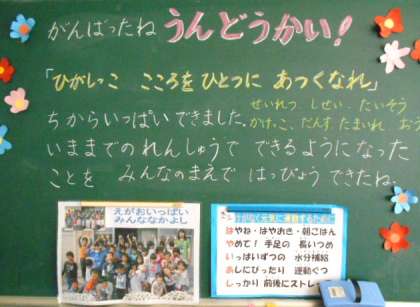 がんばったね うんどうかい!
「ひがしっこ こころをひとつに あつくなれ」
ちからいっぱいできました。
せいれつ、しせい、たいそう
かけっこ、だんす、たまいれ、おう
いままでのれんしゅうで できるようになった
ことを みんなのまえで はっぴょうできたね。
えがおいっぱい
みんななかよし
けがなく元気に運動するために
はやね・はやおき・朝ごはん
やめて! 手足の 長いつめ
いっぱいずつの 水分補給
あしにぴったり 運動ぐつ
しっかり 前後にストレ